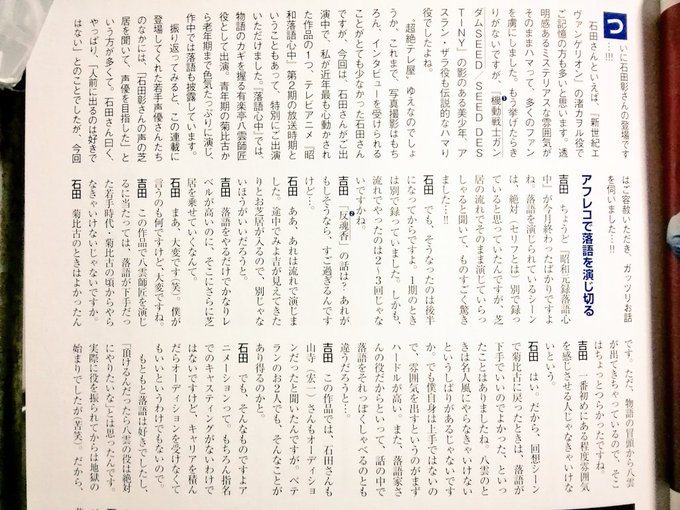 ついに石田彰さんの登場です
…!!!
石田さんといえば、『新世紀エ
ヴァンゲリオン』の渚カヲル役で
ご記憶の方も多いと思います。透
明感あるミステリアスな雰囲気が
そのままハマって、多くのファン
を虜にしました。もう挙げたらき
りがないですが、『機動戦士ガン
ダムSEED/SEED DES
TINY』の影のある美少年、ア
スラン・ザラ役も伝説的なハマり
役でしたよね。
“超絶テレ屋”ゆえなのでしょ
うか、これまで、写真撮影はもち
ろん、インタビューを受けられる
ことがとても少なかった石田さん
ですが、今回は、石田さんがご出
演中で、私が近年最も心動かされ
た作品の1つ、テレビアニメ『昭
和落語心中』第2期の放送時期と
いうこともあって、特別にご出演
いただけました。『落語心中』では、
物語のカギを握る有楽亭八雲師匠
役として出演。青年期の菊比古か
ら老年期まで色気たっぷりに演じ、
作中では落語も披露しています。
振り返ってみると、この連載に
登場してくれた若手声優さんたち
のなかには、「石田彰さんの声の芝
居を聞いて、声優を目指した」と
いう方が多くて。石田さん曰く、
やっぱり、「人前に出るのは好きで
はない」とのことでしたが、今回
はご容赦いただき、ガッツリお話
を伺いました…!!
アフレコで落語を演じ切る
吉田 ちょうど『昭和元録落語心
中』が今月終わったばかりですよ
ね。落語を演じられているシーン
は、絶対、“セリフとは”別で録っ
ていると思っていたんですが、芝
居の流れでそのまま演じていらっ
しゃると聞いて、ものすごく驚き
ました…!!
石田 でも、そうなったのは後半
になってからですよ。1期のとき
は別で録っていました。しかも、
流れでやったのは2〜3回じゃな
いですかね。
吉田 「反魂香」の話は? あれが
もしそうなら、すご過ぎるんです
けど…。
石田 ああ、あれは流れで演じま
した。途中でみよ吉が見えてきた
りとお芝居が入るので、別じゃな
いほうがいいだろうと。
吉田 落語をやるだけでかなりレ
ベルが高いのに、そこにさらに芝
居を乗せていくなんて。
石田 まあ、大変です(笑)。僕が
言うのも何ですけど、大変ですね。
吉田 この作品で八雲師匠を演じ
るに当たっては、落語が下手だっ
た若手時代・菊比古の頃からやら
なきゃいけないじゃないですか。
石田 菊比古のときはよかったん
です。ただ、物語の冒頭から八雲
が出てきちゃっているので、そこ
はちょっとつらかったですね。
吉田 一番初めにある程度雰囲気
を感じさせる人じゃなきゃいけな
いという。
石田 はい。だから、回想シーン
で菊比古に戻ったときは、落語が
下手でいいのでよかった、といっ
たことはありましたね。八雲のと
きは名人風にやらなきゃいけない
というしばりがあるじゃないです
か。でも僕自身は上手ではないの
で、雰囲気を出すというのがまず
ハードルが高い。また、落語家さ
んの役だからといって、話の中で
落語をそれっぽくしゃべるのとも
違うだろうと…。
吉田 この作品では、石田さんも
山寺(宏一)さんもオーディショ
ンだったと聞いたんですが。ベテ
ランのお2人でも、そんなことが
あり得るのかと。
石田 でも、そんなものですよア
ニメーションって。もちろん指名
でのキャスティングがないわけで
はないですけど、キャリアを積ん
だらオーディションを受けなくて
もいいというわけでもないので。
もともと落語は好きでしたし、
「頂けるんだったら八雲の役は絶対
にやりたいな」とは思ったんです。
実際に役を振られてからは地獄の
始まりでしたが(苦笑)。だから、